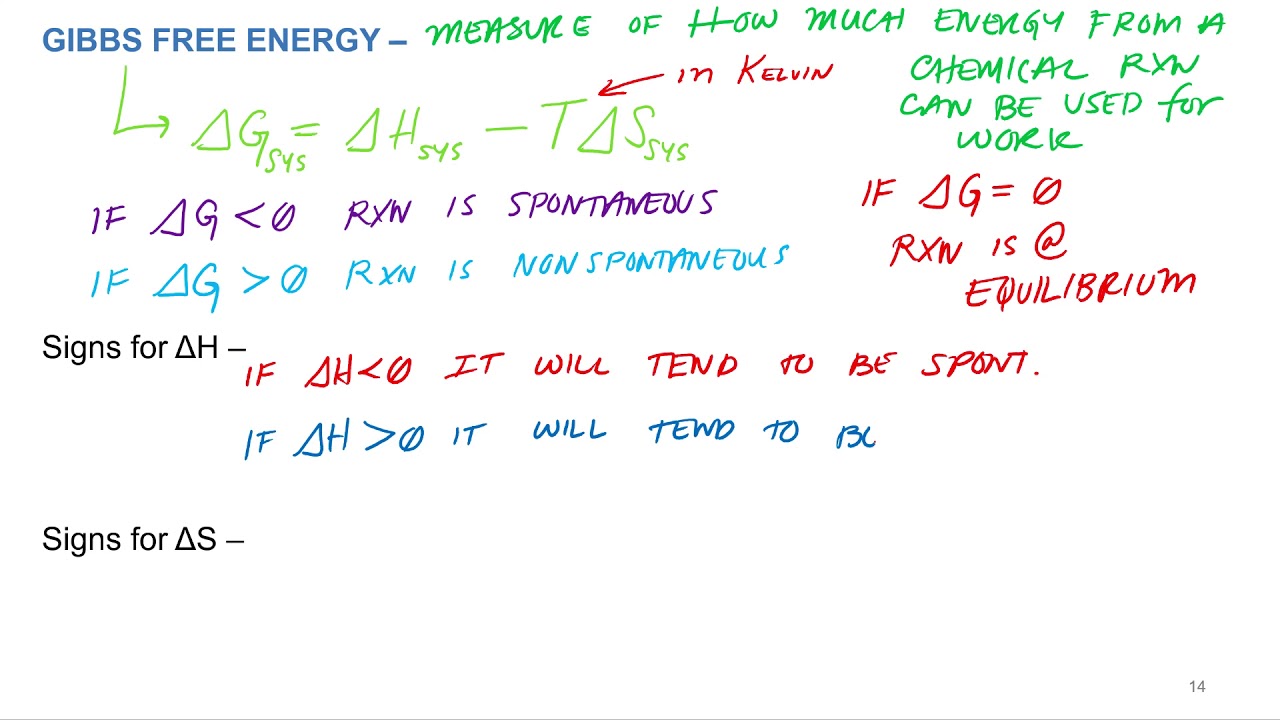 GIBBS FREE ENERGY – MEASURE OF HOW MUCH ENERGY FROM A
CHEMICAL RXN
CAN BE USED for
WORK
in KELVIN
ΔGsys = ΔHsys – TΔSsys
IF ΔG < 0 RXN IS SPONTANEOUS
IF ΔG > 0 RXN IS NONSPONTANEOUS
IF ΔG = 0
RXN IS @
EQUILIBRIUM
Signs for ΔH –
IF ΔH < 0 IT WILL TEND TO BE SPONT.
IF ΔH > 0 IT WILL TEND TO
Signs for ΔS –
14